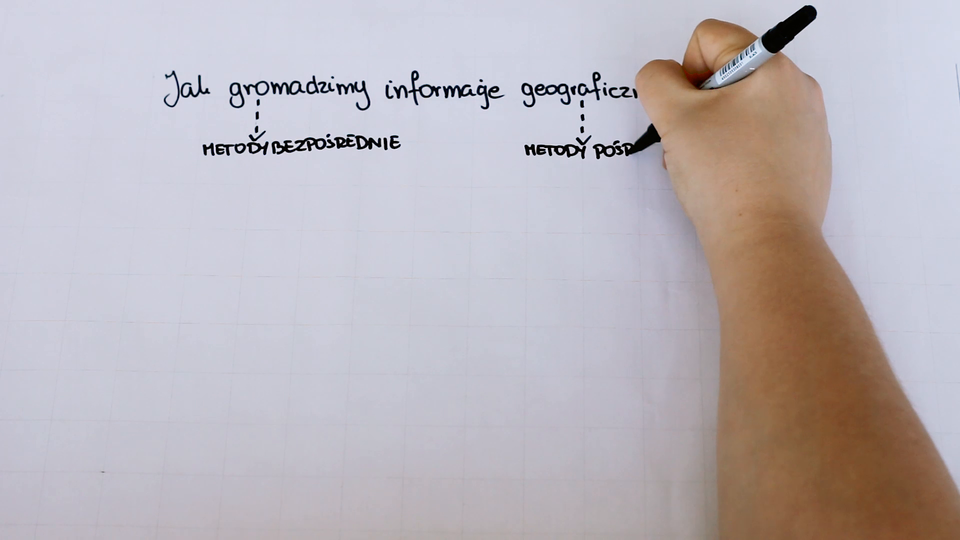 Jak gromadzimy informacje geograficzn
METODY BEZPOŚREDNIE METODY POŚR